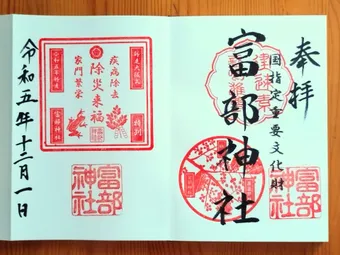 奉拝
国指定重要文化財
富部神社
富部
神社
除災来福
疾病除去
家門繁栄
特別
富部神社
富部
神社
令和五年十二月一日